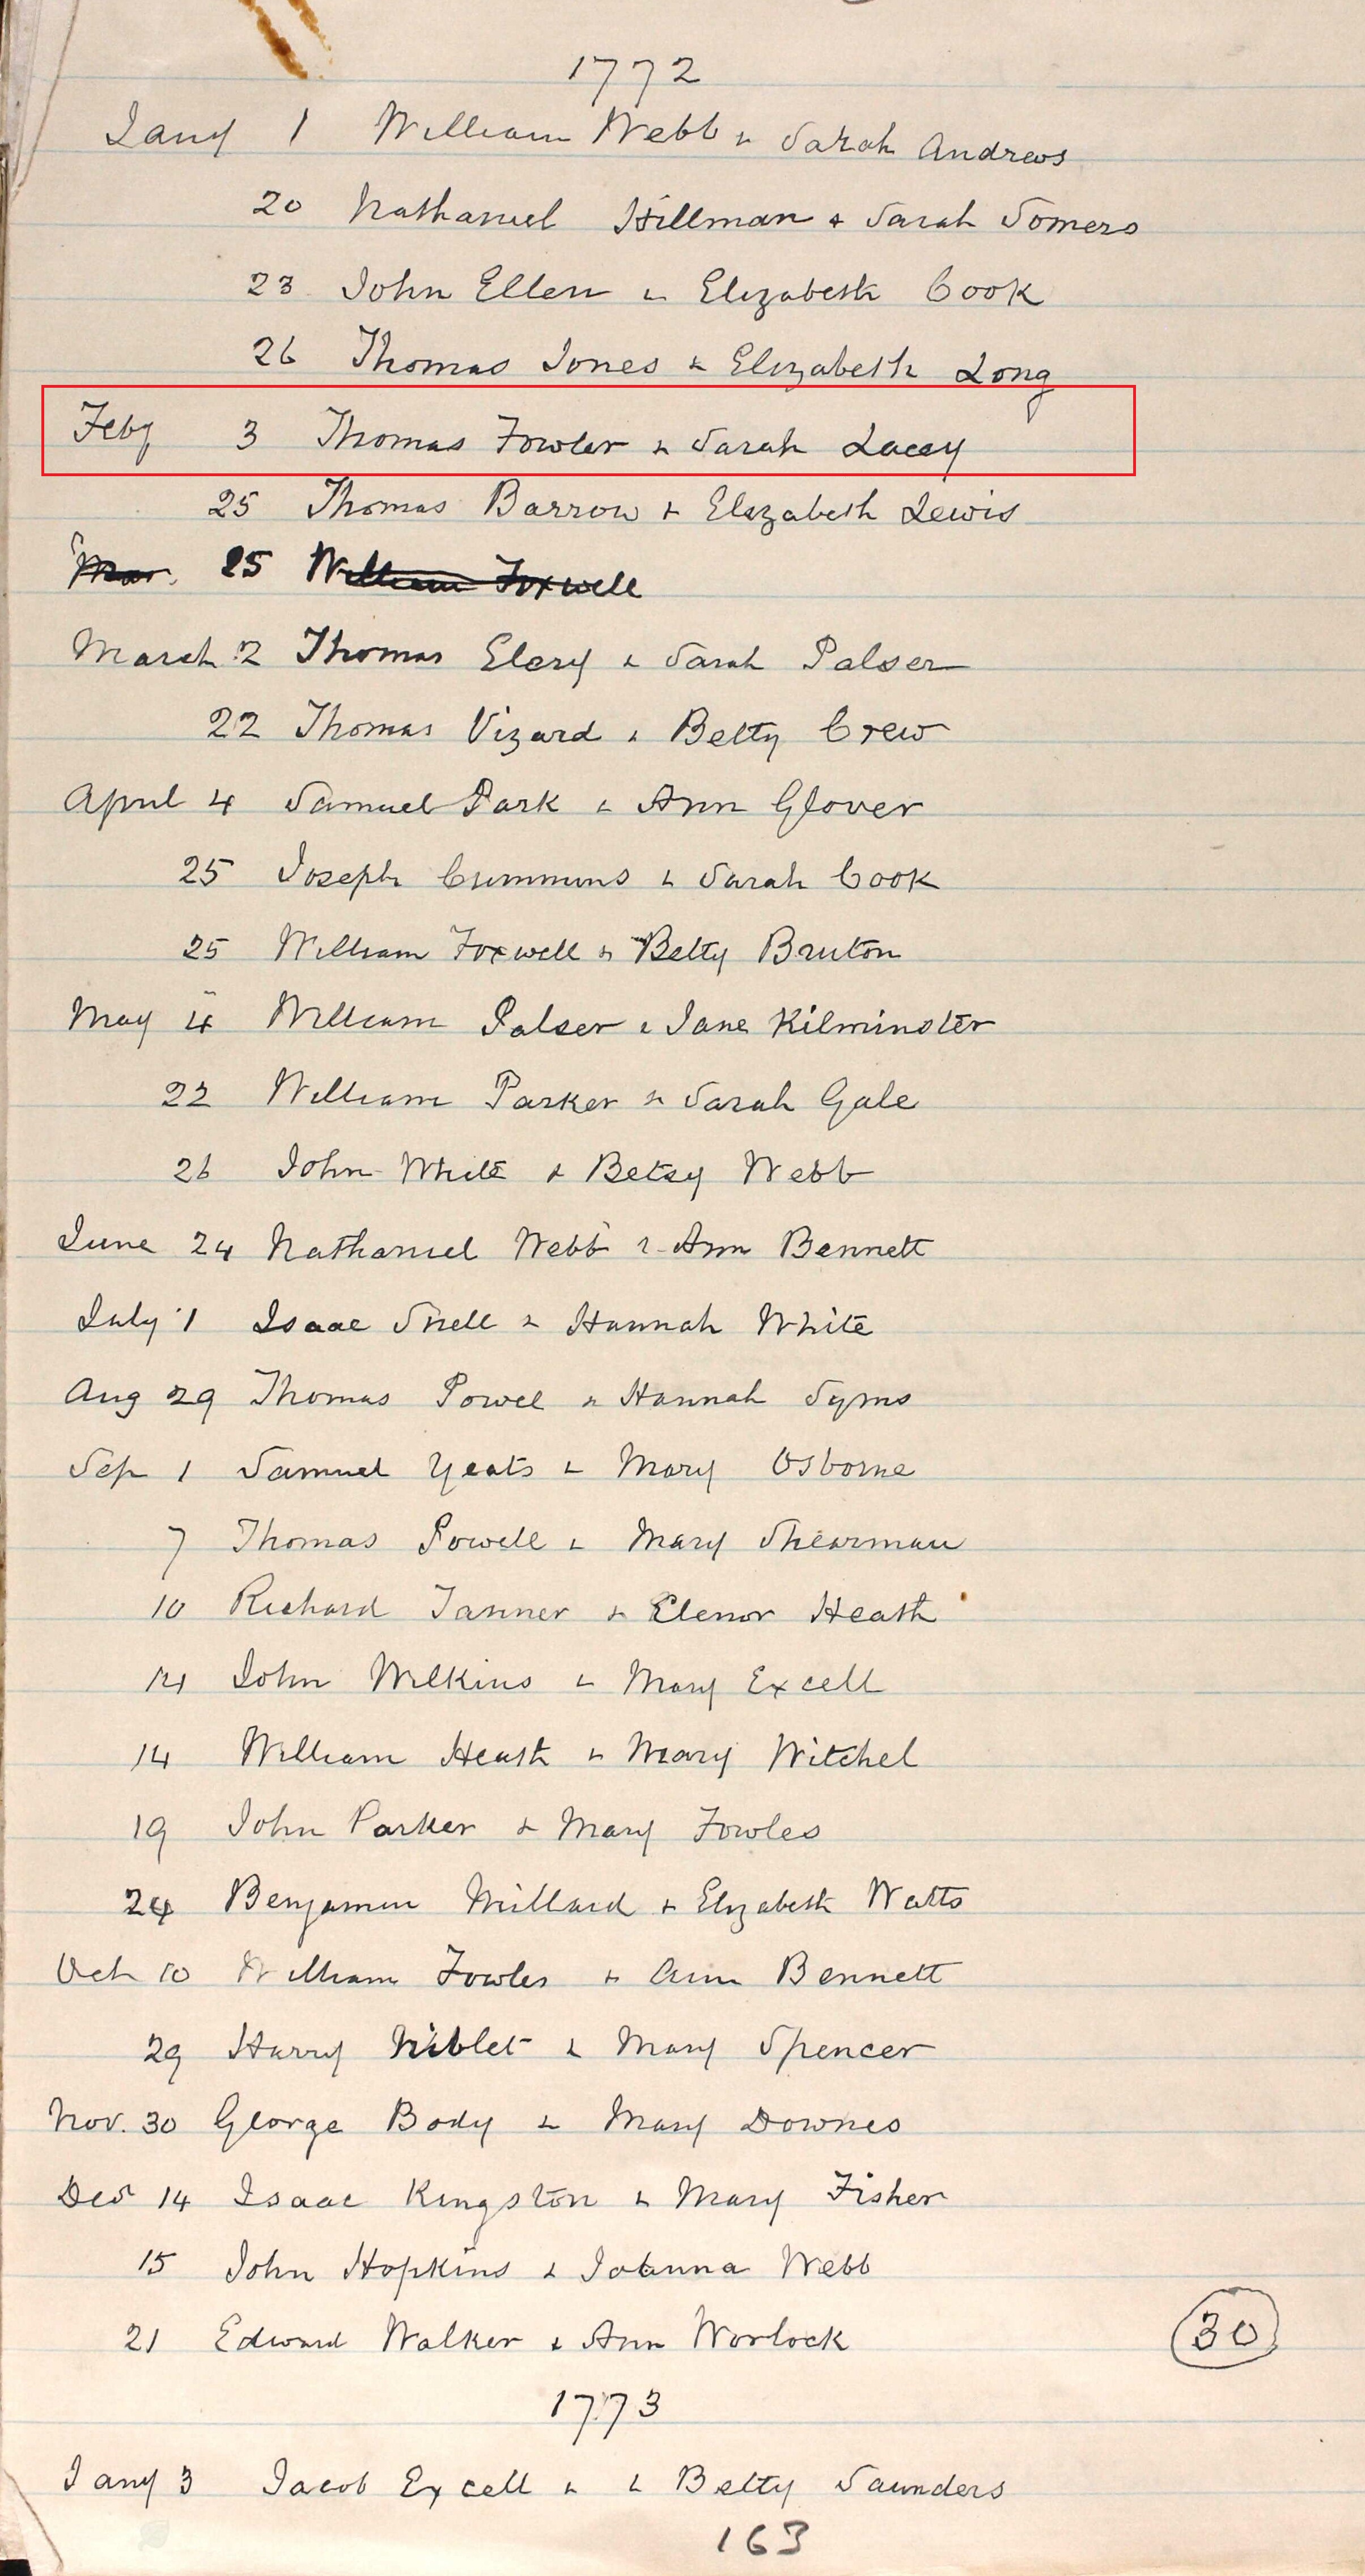 1772
Jany 1 William Webb & Sarah Andrews
20 Nathaniel Hillman & Sarah Somers
23 John Ellen & Elizabeth Cook
26 Thomas Jones & Elizabeth Long
Feby 3 Thomas Fowler & Sarah Lacey
25 Thomas Barrow & Elizabeth Lewis
Mar. 25 William Foxwell
March 2 Thomas Elery & Sarah Palser
22 Thomas Vizard & Betty Crew
April 4 Samuel Park & Ann Glover
25 Joseph Cummins & Sarah Cook
25 William Foxwell & Betty Bruton
May 4 William Palser & Jane Kilminster
22 William Parker & Sarah Gale
26 John White & Betsy Webb
June 24 Nathaniel Webb & Ann Bennett
July 1 Isaac Snell & Hannah White
Aug 29 Thomas Powel & Hannah Syms
Sep 1 Samuel Yeats & Mary Osborne
7 Thomas Powell & Mary Shearman
10 Richard Tanner & Elenor Heath
14 John Wilkins & Mary Excell
14 William Heath & Mary Witchel
19 John Parker & Mary Fowles
24 Benjamin Millard & Elizabeth Watts
Oct 10 William Fowles & Ann Bennett
29 Harry Niblet & Mary Spencer
Nov. 30 George Body & Mary Downes
Dec 14 Isaac Kingston & Mary Fisher
15 John Hopkins & Joanna Webb
21 Edward Walker & Ann Worlock
30
1773
Jany 3 Jacob Excell & & Betty Saunders
163